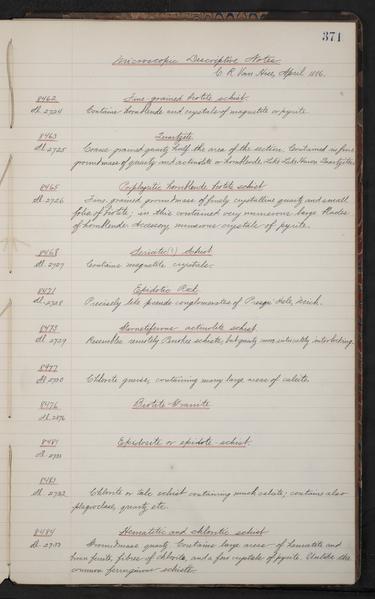 371
Microscopic Descriptive Notes
C. R. Van Hise, April 1886.
8462 Fine grained biotite schist.
Sl. 2724 Contains hornblende and crystals of magnetite or pyrite.
8463 Quartzite
Sl. 2725 Coarse grained quartz half the area of the section. Contained in fine
groundmass of quartz and actinolite or hornblende. Like Lake Huron Quartzites
8465 Porphyritic hornblende biotite schist
Sl. 2726 Fine grained groundmass of finely crystalline quartz and small
folia of biotite; in this contained very numerous large blades
of hornblende. Accessory numerous crystals of pyrite.
8468 Sericitic(?) Schist
Sl. 2727 Contains magnetite crystals.
8471 Epidotic Rock
Sl. 2728 Precisely like pseudo conglomerates of Presqu' Isle, Mich.
8473 actinolite schist
Sl. 2729 Resembles remotely schists, but quartz more intricately interlocking.
8477
Sl. 2730 Chlorite gneiss, containing many large areas of calcite.
8476 Biotite-Granite
Sl. 2876
8481 Epidosite or epidote-schist.
Sl. 2731
8481
Sl. 2732 Chlorite or talc schist containing much calcite; contains also
plagioclase, quartz etc.
8484 Hematitic and chloritic schist
Sl. 2733 Groundmass quartz. Contains large areas of hematite and
fibres of chlorite, and a few crystals of pyrite. Unlike the
common ferruginous schists.